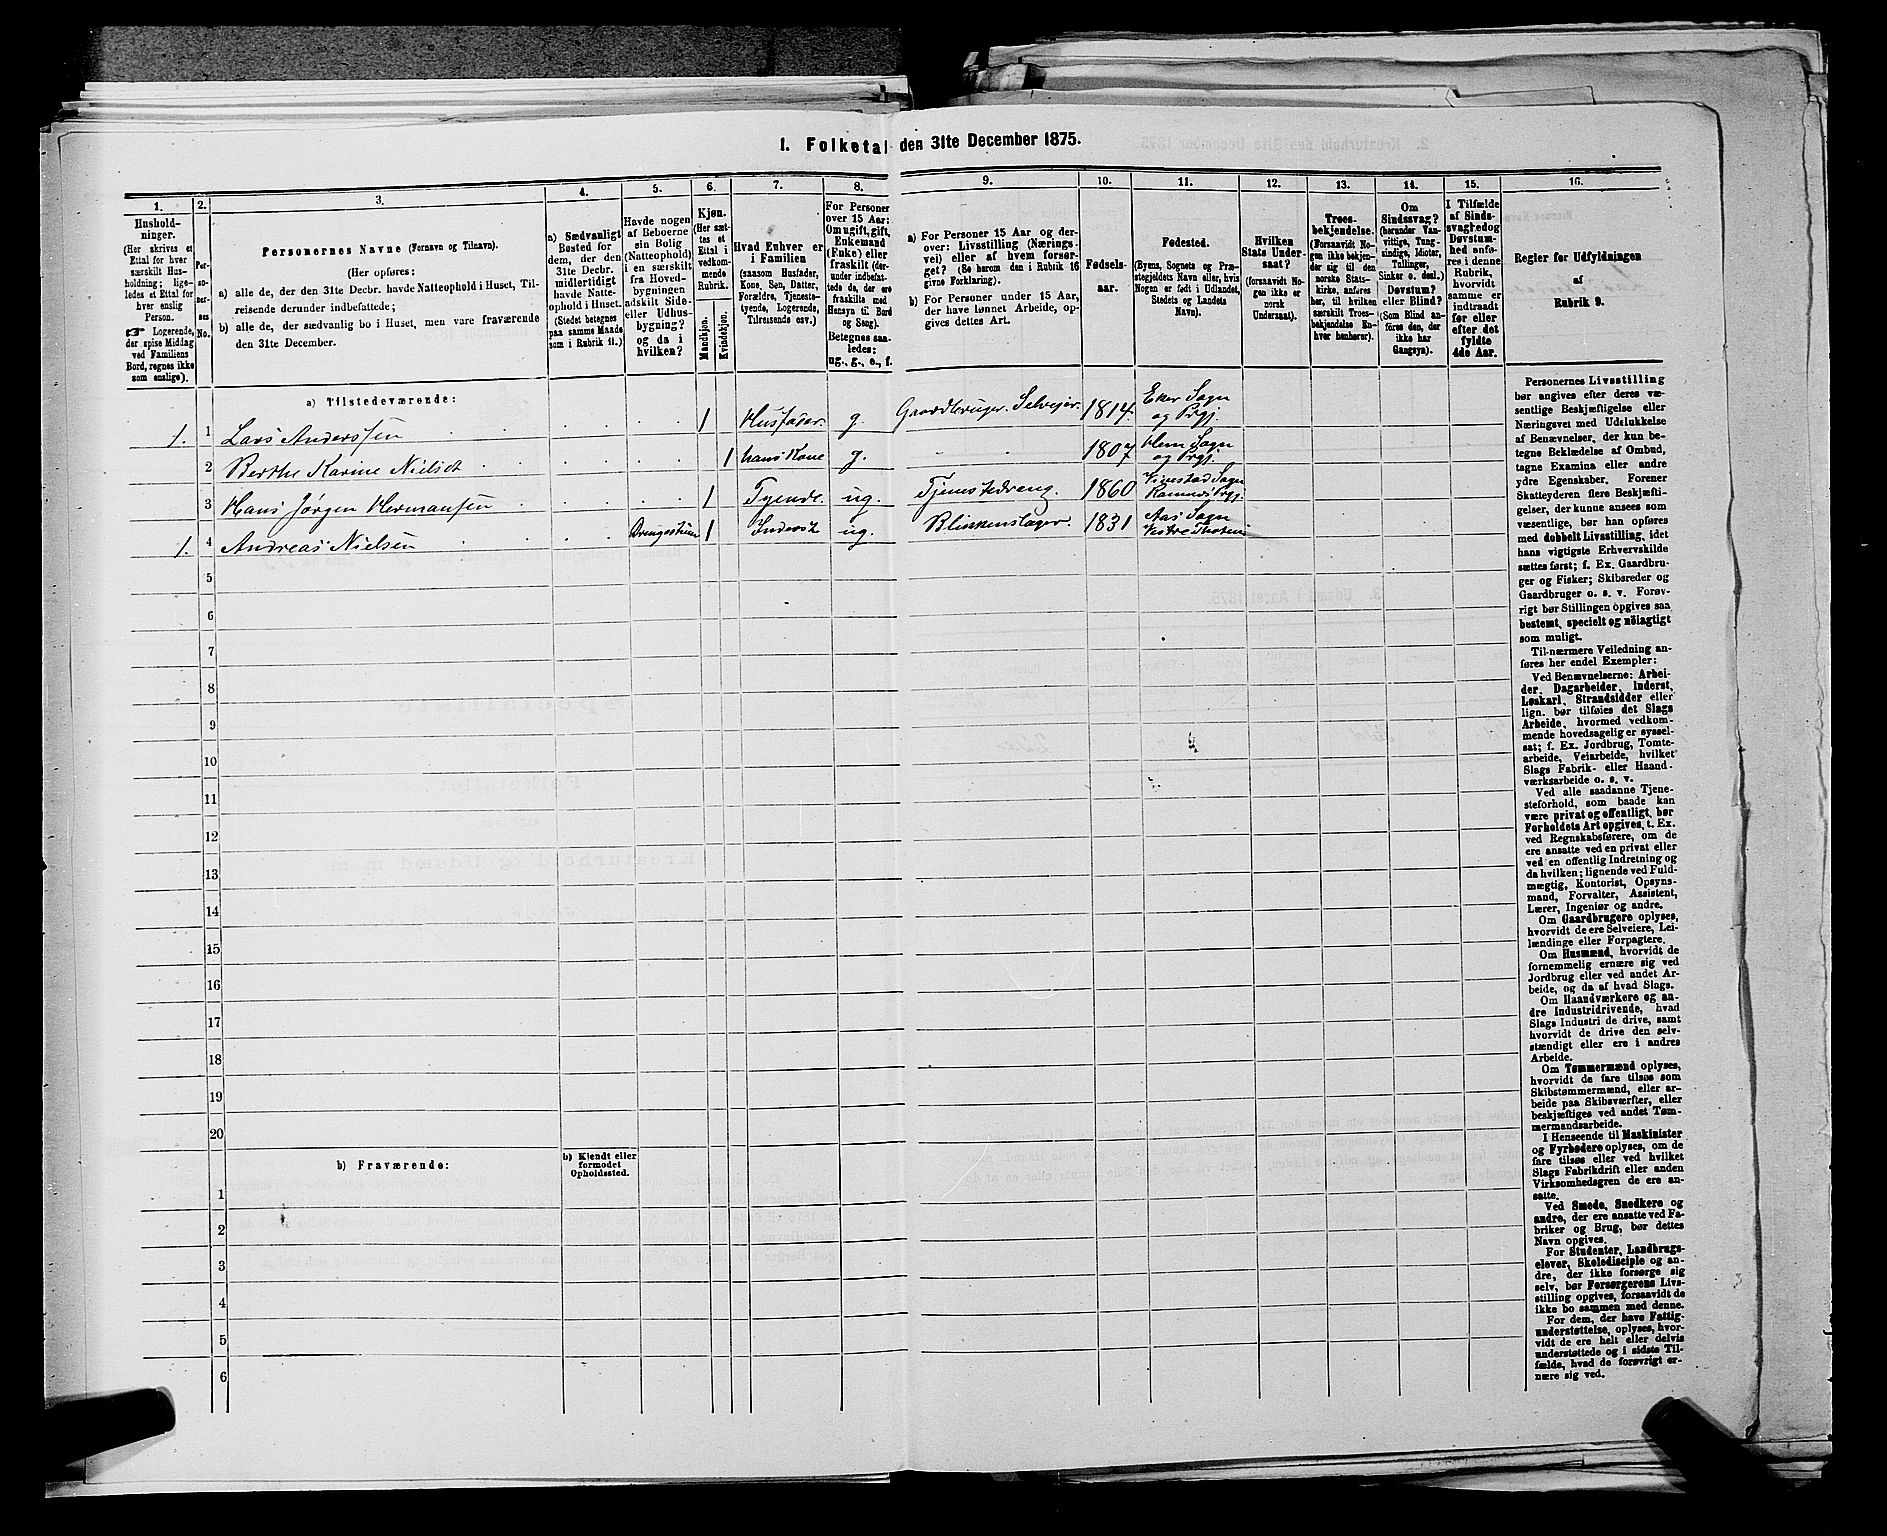 1. Folketal den 31te December 1875.
1.
2.
3.
4.
5.
6.
7.
8.
9.
10.
11.
12.
13.
14.
15.
16.
Hushold-
ninger.
(Her skrives et
Ettal for hver
særskilt Hus-
holdning; lige-
ledes et Ettal for
hver enslig
Person.
☞ Logerende,
der spise Middag
ved Familiens
Bord, regnes ikke
som enslige).
Per-
so-
ner-
nes
No.
Personernes Navne (Fornavn og Tilnavn).
(Her opføres:
a) alle de, der den 31te Decbr. havde Natteophold i Huset, Til-
reisende derunder indbefattede;
b) alle de, der sædvanlig bo i Huset, men vare fraværende
den 31te December.
a) Sædvanligt
Bosted for
dem, der den
31te Decbr.
midlertidigt
havde Natte-
ophold i Huset.
(Stedet betegnes
paa samme Maade
som i Rubrik 11.)
Havde nogen
af Beboerne
sin Bolig
(Natteophold)
i en særskilt
fra Hoved-
bygningen
adskilt Side-
eller Udhus-
bygning?
og da i
hvilken?
Kjøn.
(Her sæt-
tes et
Ettal i
vedkom-
mende
Rubrik.
Mandkjøn.
Kvindekjøn.
Hvad Enhver er
i Familien
(saasom Husfader,
Kone, Søn, Datter,
Forældre, Tjeneste-
tyende, Logerende,
Tilreisende osv.)
For Personer
over 15 Aar:
Om ugift, gift,
Enkemand
(Enke) eller
fraskilt (der-
under indbefat-
tede de, der ere
fraskilte med
Hensyn til Bord
og Seng).
Betegnes saa-
ledes:
ug., g., e., f.
a) For Personer 15 Aar og der-
over: Livsstilling (Nærings-
vei) eller af hvem forsør-
get? (Se herom den i Rubrik 16
givne Forklaring).
b) For Personer under 15 Aar,
der have lønnet Arbeide, op-
gives dettes Art.
Fødsels-
aar.
Fødested.
(Byens, Sognets og Præ-
stegjeldets Navn eller, hvis
Nogen er født i Udlandet,
Stedets og Landets
Navn).
Hvilken
Stats Under-
saat?
(forsaavidt No-
gen ikke er
norsk
Undersaat).
Troes-
bekjendelse.
(Forsaavidt No-
gen ikke bekjen-
der sig til den
norske Stats-
kirke, anføres
her, til hvilken
særskilt Troes-
bekjendelse En-
hver henhører).
Om
Sindssvag?
(herunder Van-
vittige, Tung-
sindige, Idioter,
Tullinger,
Sinker o. desl.)
Døvstum?
eller Blind?
(Som Blind an-
føres den, der
ikke har
Gangsyn).
I Tilfælde
af Sinds-
svaghed og
Døvstum-
hed anfø-
res i denne
Rubrik,
hvorvidt
samme er
indtraadt
før eller
efter det
fyldte
4de Aar.
Regler for Udfyldningen
af
Rubrik 9.
a) Tilstedeværende:
1. 1 Lars Anderssen 1 Husfader. g. Gaardbruger. Selveier. 1814. Eker Sogn og Prgj.
2 Berthe Karine Nielsdt 1 hans Kone g. 1807 Hem Sogn og Prgj.
3 Hans Jørgen Hermansen 1 Tyende. ug. Tjenestedreng. 1860 Vivestad Sogn Ramnes Prgj.
1. 4 Andreas Nielsen Drengestuen 1 Inderst ug. Blikkenslager. 1831 Aas Sogn Vestre Thoten
5
6
7
8
9
10
11
12
13
14
15
16
17
18
19
20
b) Fraværende:
b) Kjendt eller
formodet
Opholdssted.
1
2
3
4
5
6
Personernes Livsstilling
bør angives efter deres væ-
sentlige Beskjæftigelse eller
Næringsvei med Udelukkelse
af Benævnelser, der kun be-
tegne Beklædelse af Ombud,
tagne Examina eller andre
ydre Egenskaber. Forener
Skatteyderen flere Beskjæfti-
gelser, der kunne ansees som
væsentlige, bør han opføres
med dobbelt Livsstilling, idet
hans vigtigste Erhvervskilde
sættes først; f. Ex. Gaardbru-
ger og Fisker; Skibsreder og
Gaardbruger o. s. v. Forøv-
rigt bør Stillingen opgives saa
bestemt, specielt og nøiagtigt
som muligt.
Til nærmere Veiledning an-
føres her endel Exempler:
Ved Benævnelserne: Arbei-
der, Dagarbeider, Inderst,
Løskarl, Strandsidder eller
lign. bør tilføies det Slags
Arbeide, hvormed vedkom-
mende hovedsagelig er syssel-
sat; f. Ex. Jordbrug, Tomte-
arbeide, Veiarbeide, hvilket
Slags Fabrik- eller Haand-
værksarbeide o. s. v.
Ved alle saadanne Tjene-
steforhold, som baade kan
være privat og offentligt, bør
Forholdets Art opgives, t. Ex.
ved Regnskabsførere, om de
ere ansatte ved en privat eller
ved en offentlig Indretning og
da hvilken; lignende ved Fuld-
mægtig, Kontorist, Opsyns-
mand, Forvalter, Assistent,
Lærer, Ingeniør og andre.
Om Gaardbrugere oplyses,
hvorvidt de ere Selveiere, Lei-
lændinge eller Forpagtere.
Om Husmænd, hvorvidt de
fornemmelig ernære sig ved
Jordbrug eller ved andet Ar-
beide, og da af hvad Slags.
Om Haandværkere og an-
dre Industridrivende, hvad
Slags Industri de drive, samt
hvorvidt de drive den selv-
stændigt eller ere i andres
Arbeide.
Om Tømmermænd oplyses,
hvorvidt de fare tilsøs som
Skibstømmermænd, eller ar-
beide paa Skibsværfter, eller
beskjæftiges ved andet Tøm-
mermandsarbeide.
I Henseende til Maskinister
og Fyrbødere oplyses, om de
fare tilsøs eller ved hvilket
Slags Fabrikdrift eller anden
Virksomhedsgren de ere an-
satte.
Ved Smede, Snedkere og
andre, der ere ansatte ved Fa-
briker og Brug, bør dettes
Navn opgives.
For Studenter, Landbrugs-
elever, Skoledisciple og an-
dre, der ikke forsørge sig
selv, bør Forsørgerens Livs-
stilling opgives, forsaavidt de
ikke bo sammen med denne.
For dem, der have Fattig-
understøttelse, oplyses, hvor-
vidt de ere helt eller delvis
understøttede og i sidste Til-
fælde, hvad de forøvrigt er-
nære sig ved.